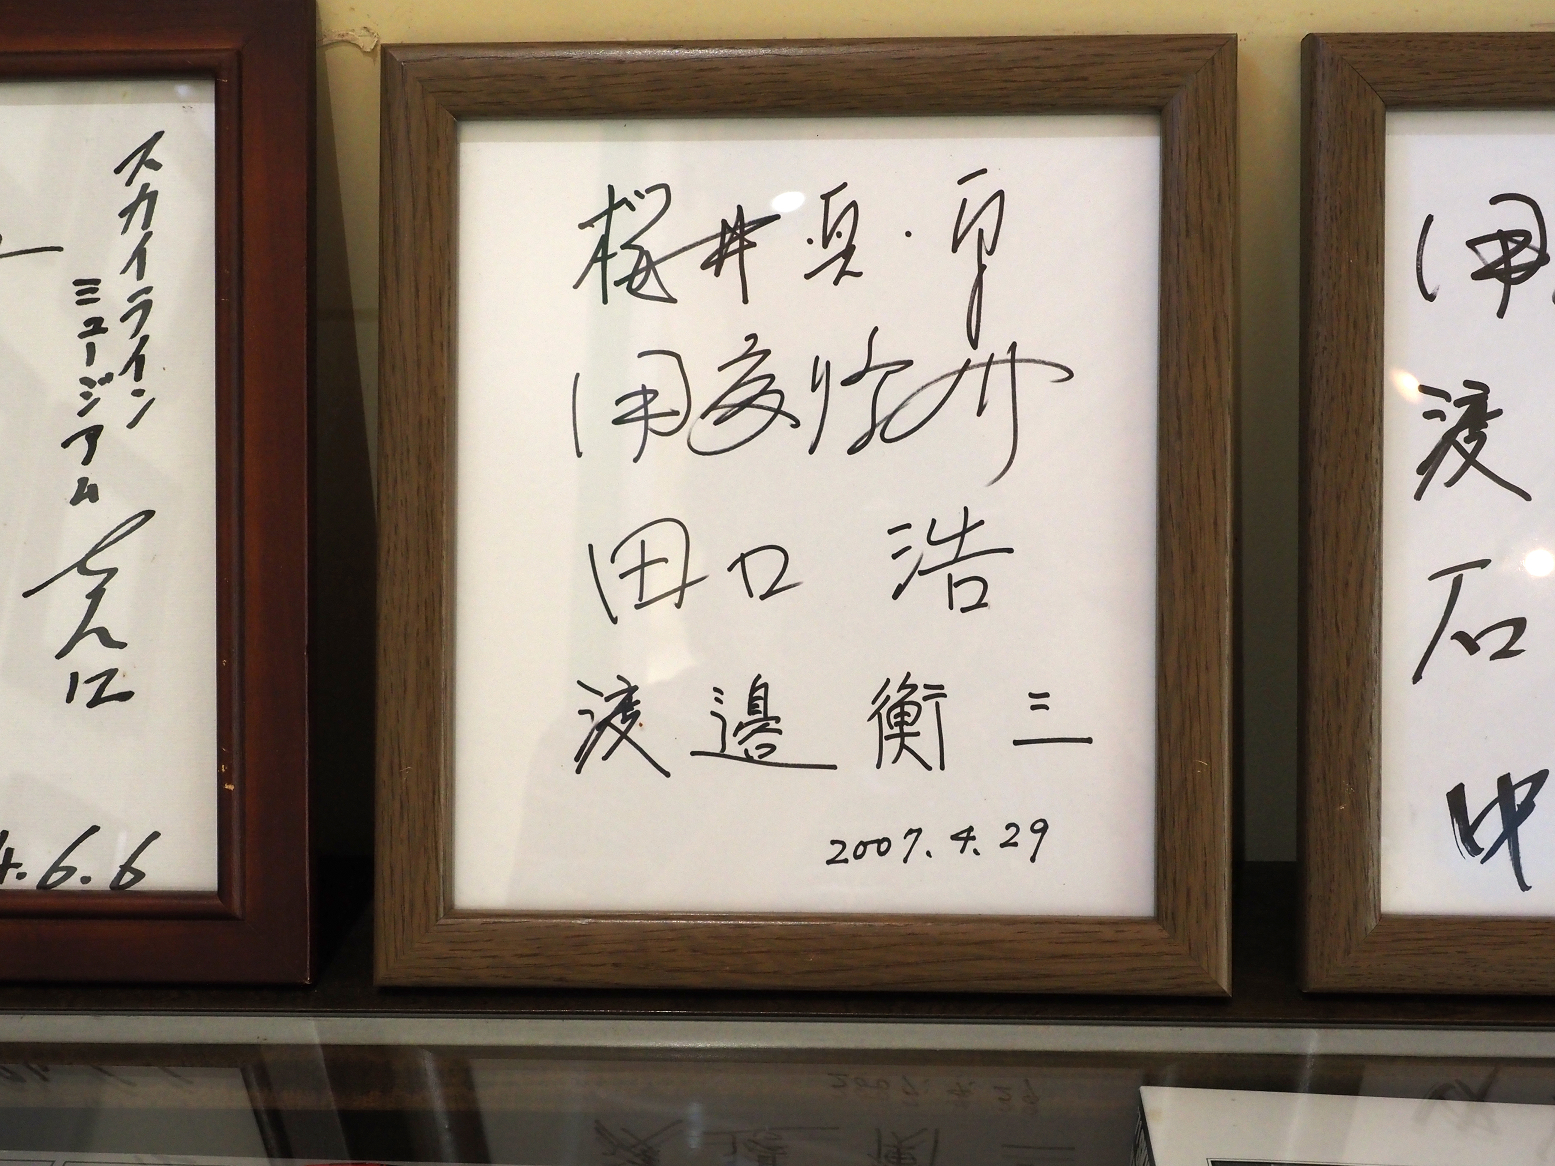 スカイライン
ミュージアム さんに
4.6.6
桜井眞一郎
伊藤修令
田口 浩
渡邊衡三
2007.4.29
伊
渡
石
中